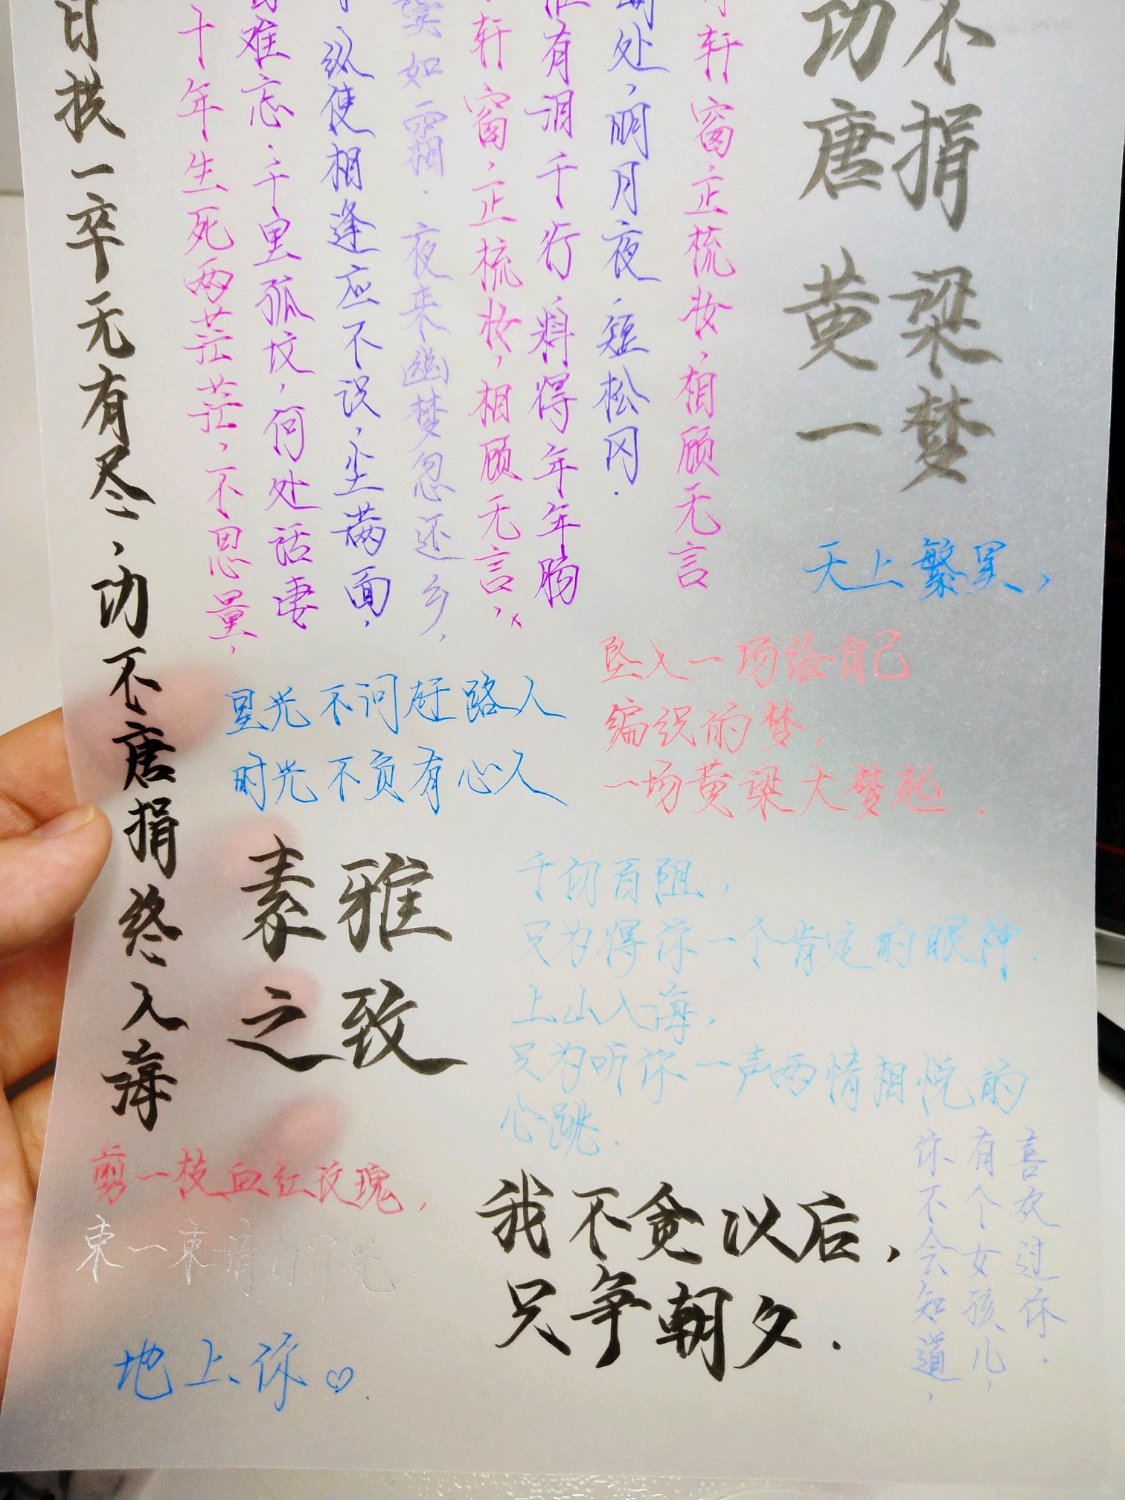 日拱一卒无有尽，功不唐捐终入海
十年生死两茫茫，不思量，
难忘.千里孤坟，何处话凄
纵使相逢应不识，尘满面，
鬓如霜.夜来幽梦忽还乡，
轩窗，正梳妆，相顾无言，
有泪千行，料得年年肠
处，明月夜，短松冈.
轩窗正梳妆，相顾无言
功不
唐捐
黄梁
一梦
天上繁星，
坠入一场给自己
编织的梦.
一场黄梁大梦起.
星光不问赶路人
时光不负有心人
素雅
之致
千仞百阻，
只为得你一个肯定的眼神.
上山入海，
只为听你一声两情相悦的
心跳.
剪一枝血红玫瑰，
束一束
地上你♡.
我不贪以后，
只争朝夕.
你不会知道，
有个女孩儿，
喜欢过你.